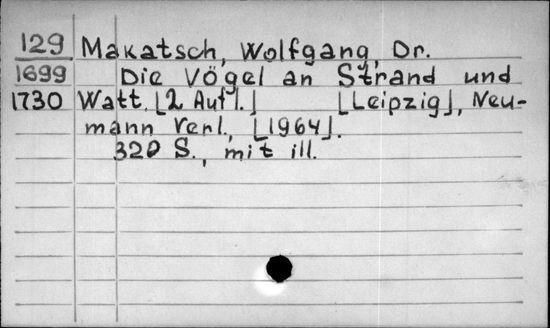 129 Makatsch, Wolfgang, Dr.
1699 Die Vögel an Strand und
1730 Watt. [2 Aufl.] [Leipzig], Neu-
mann Verl., [1964].
320 S., mit ill.